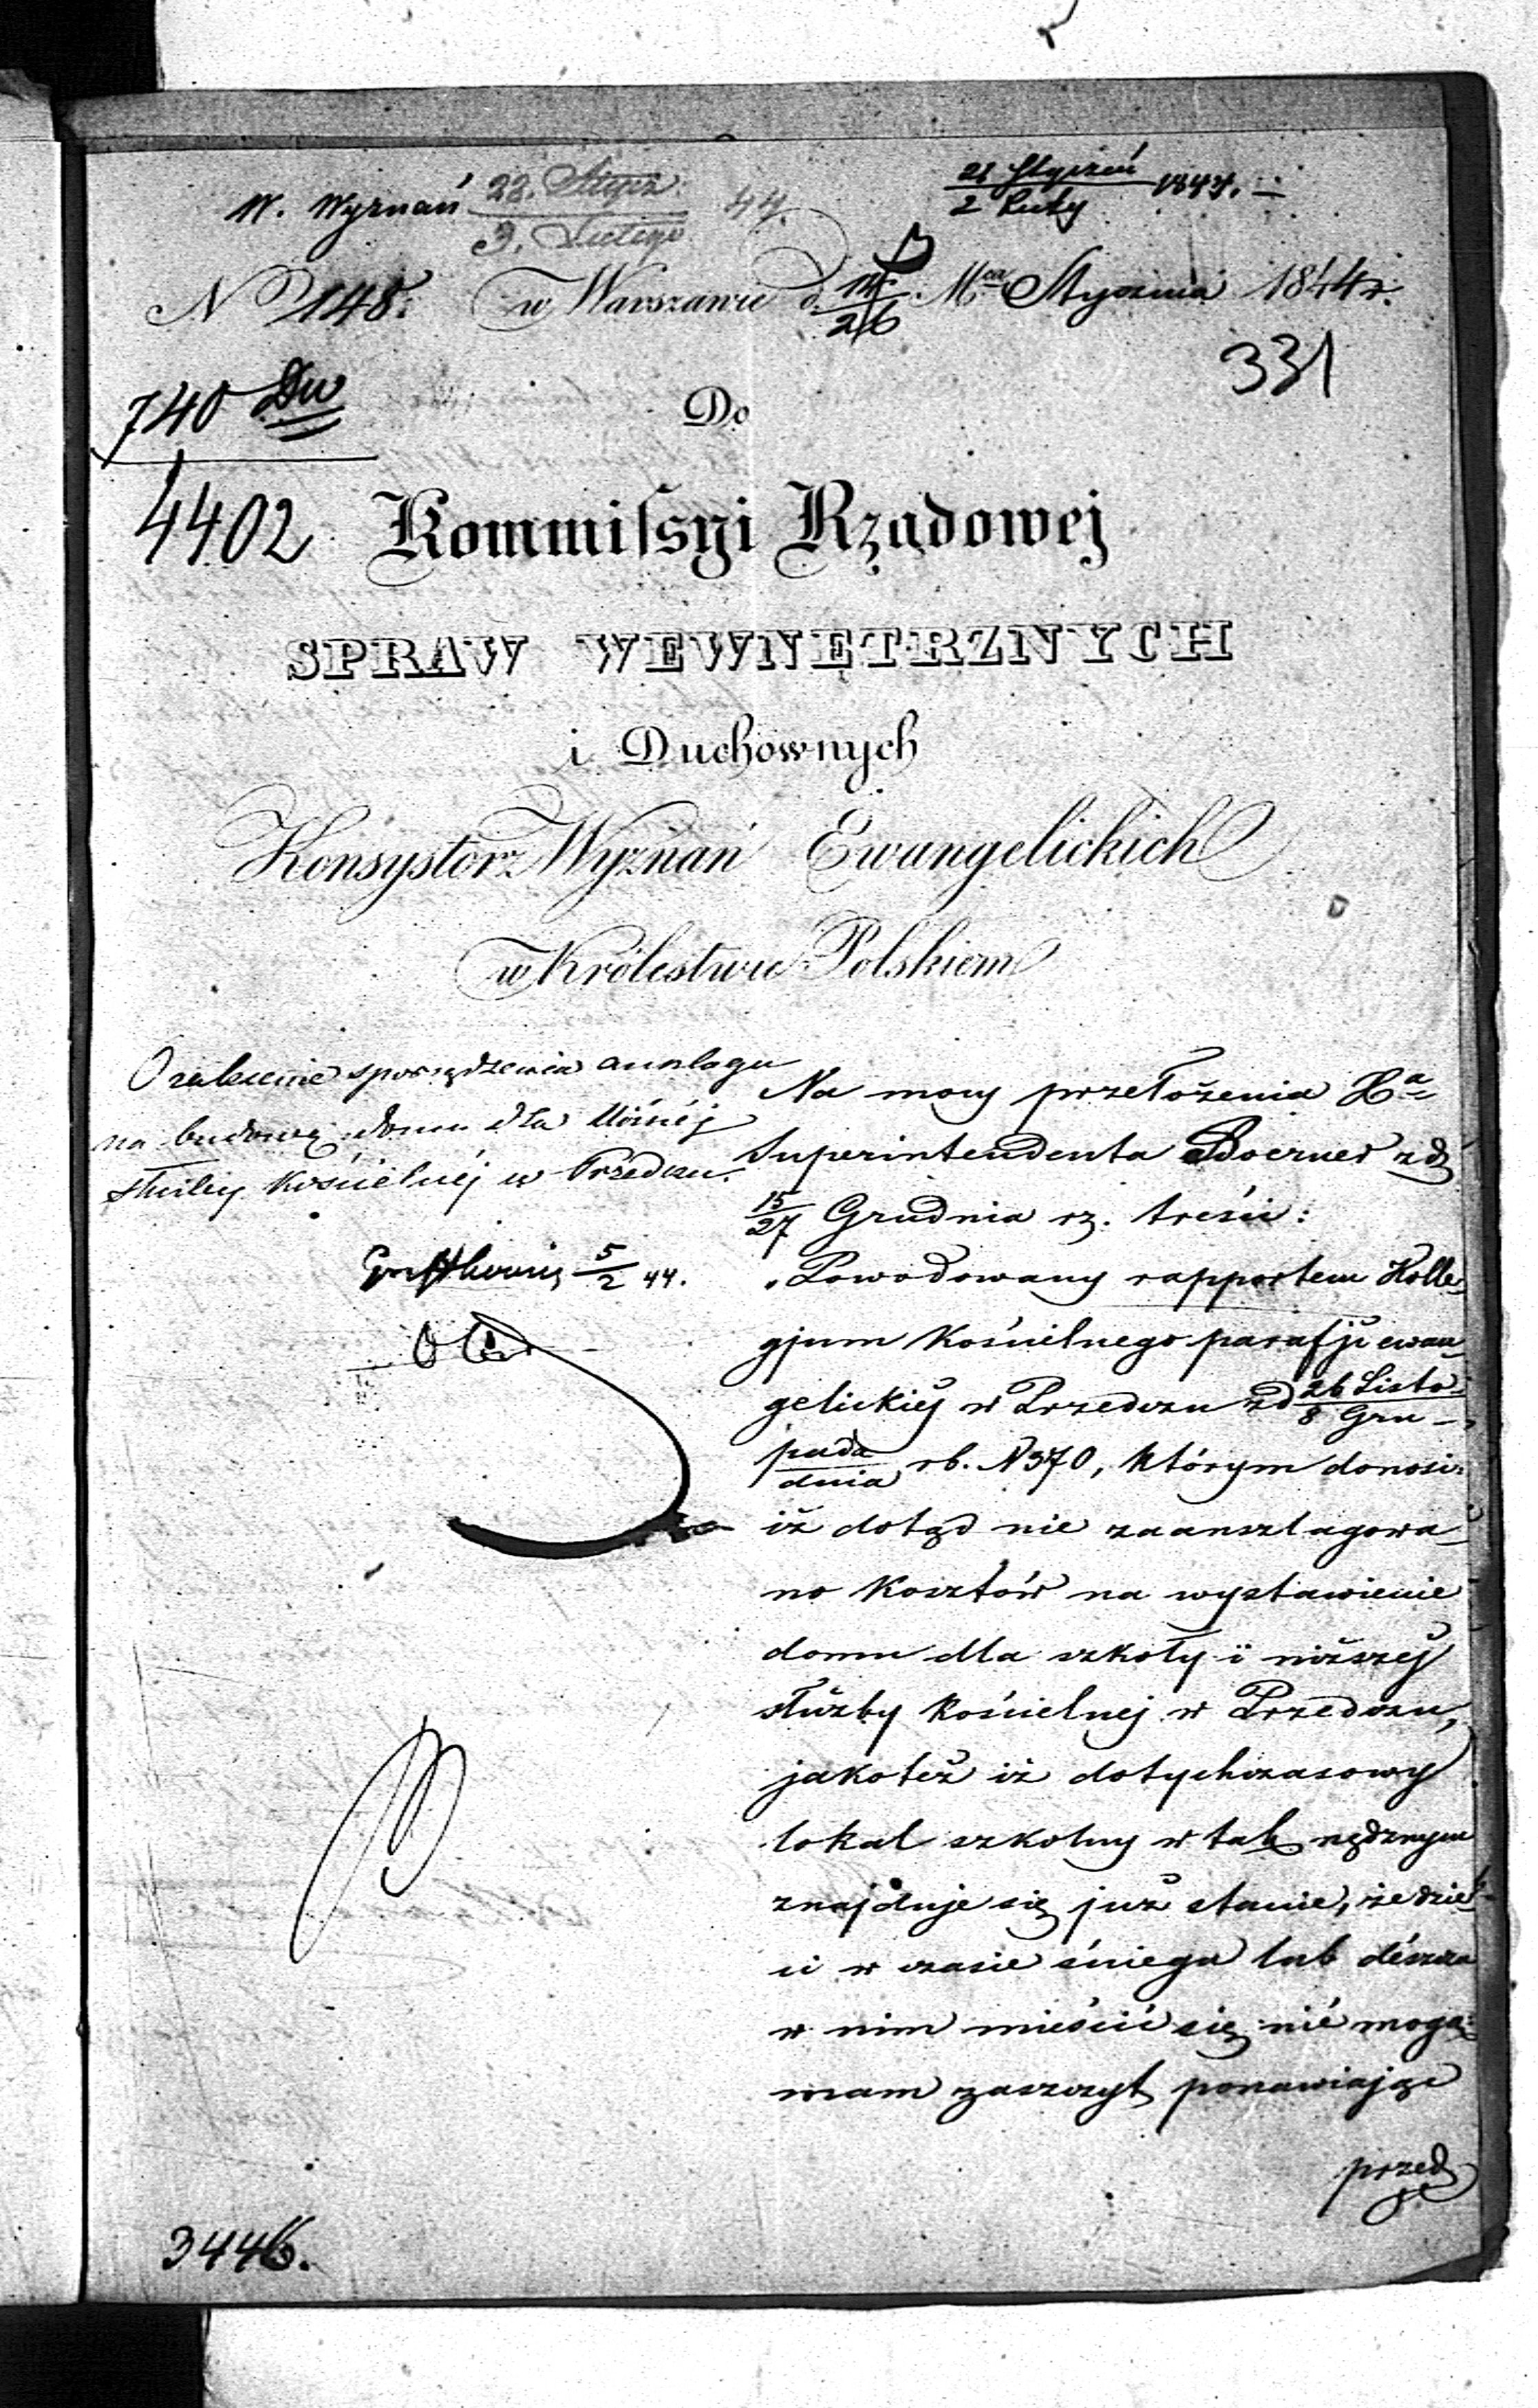 W. Wyznań 22. Stycz. / 3. Lutego 44.
21 Styczeń / 2 Luty 1844.
N 148. w Warszawie d. 14/26 Mca Stycznia 1844 r.
331
740 Dw
4402
Do
Kommiſsyi Rządowej
SPRAW WEWNĘTRZNYCH
i Duchownych
Konsystorz Wyznań Ewangelickich
w Królestwie Polskiem
O zalecenie sporządzenia anszlagu
na budowę domu dla niższéj
służby kościelnéj w Przedczu.
5/2 44.
Na mocy przełożenia Xa
Superintendenta Boerner z d.
15/27 Grudnia rz. treści:
„Powodowany rapportem Kolle-
gjum Kościelnego parafji ewan-
gelickiej w Przedczu z d 26 Listo- / 8 Gru-
pada / dnia rb. N 370, którym donosi
iż dotąd nie zaanszlagowa-
no kosztów na wystawienie
domu dla szkoły i niższej
służby kościelnej w Przedczu,
jakoteż iż dotychczasowy
lokal szkolny w tak nędznym
znajduje się już stanie, że dzie-
ci w czasie śniegu lub deszczu
w nim mieścić się nie mogą:
mam zaszczyt ponawiając
przed
3446.